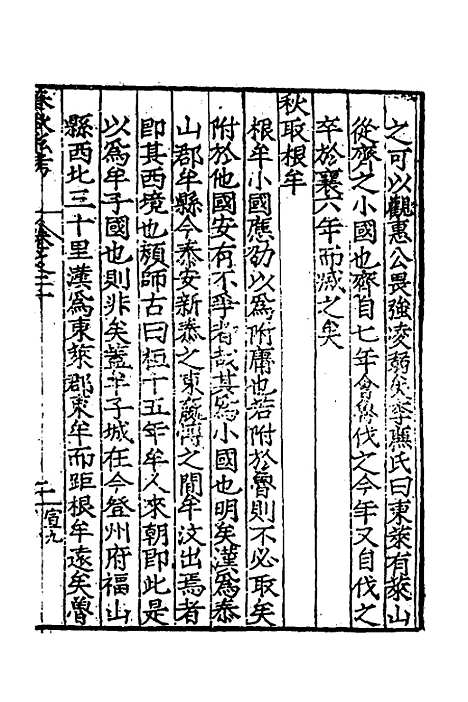 之可以觀惠公畏強凌弱矣李廉氏曰東萊有萊山
從齊之小國也齊自七年會魯伐之今年又自伐之
卒於襄六年而滅之矣
秋取根牟
根牟小國應劭以為附庸也若附於魯則不必取矣
附於他國安有不爭者哉其為小國也明矣漢為泰
山郡牟縣今泰安新泰之東嬴博之間牟汶出焉者
即其西境也顏師古曰桓十五年牟人來朝即此是
以為牟子國也則非矣蓋牟子城在今登州府福山
縣西北三十里漢為東萊郡東牟而距根牟遠矣魯
卷之二十
宣九